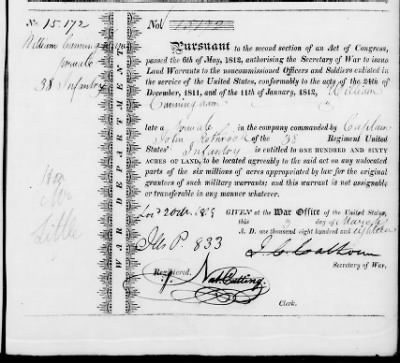 No 15.172
William Cunningham
private
38 Infantry
WAR DEPARTMENT
No.
Pursuant to the second section of an Act of Congress,
passed the 6th of May, 1812, authorising the Secretary of War to issue
Land Warrants to the noncommissioned Officers and Soldiers enlisted in
the service of the United States, conformably to the acts of the 24th of
December, 1811, and of the 11th of January, 1812, William
Cunningham
late a private in the company commanded by Captain
John Rothrock of the 38 Regiment United
States' Infantry is entitled to ONE HUNDRED AND SIXTY
ACRES OF LAND, to be located agreeably to the said act on any unlocated
parts of the six millions of acres appropriated by law for the original
grantees of such military warrants; and this warrant is not assignable
or transferable in any manner whatever.
GIVEN at the War Office of the United States,
this day of
A. D. one thousand eight hundred and eighteen
P. 833
J. C. Calhoun
Secretary of War.
Registered.
Nat. Cutting.
Clerk.
Little